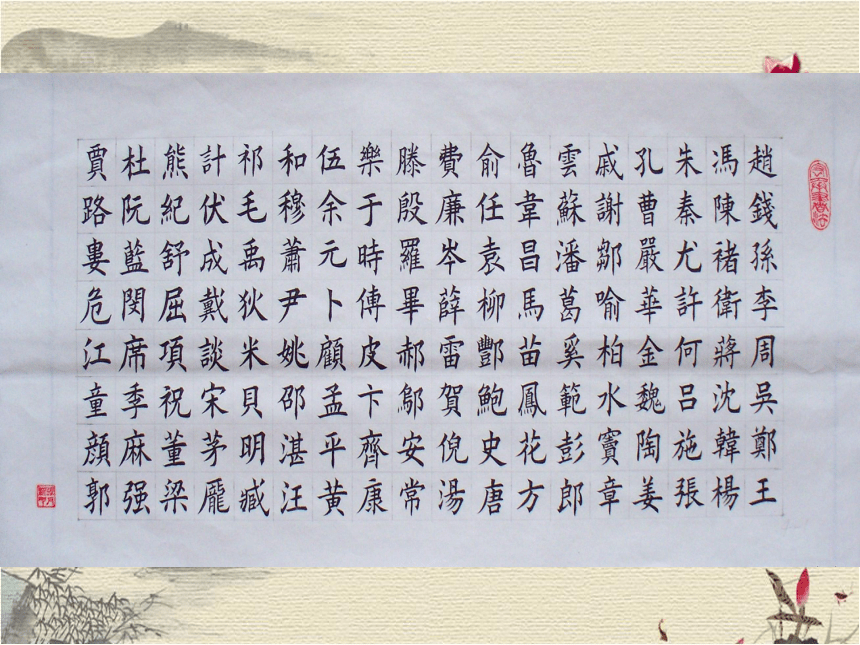 趙錢孫李周吳鄭王
馮陳褚衛蔣沈韓楊
朱秦尤許何吕施張
孔曹嚴華金魏陶姜
戚謝鄒喻柏水竇章
雲蘇潘葛奚範彭郎
魯韋昌馬苗鳳花方
俞任袁柳酆鮑史唐
費廉岑薛雷賀倪湯
滕殷羅畢郝鄔安常
樂于時傅皮卞齊康
伍余元卜顧孟平黄
和穆蕭尹姚邵湛汪
祁毛禹狄米貝明臧
計伏成戴談宋茅龐
熊紀舒屈項祝董梁
杜阮藍閔席季麻强
賈路婁危江童顔郭